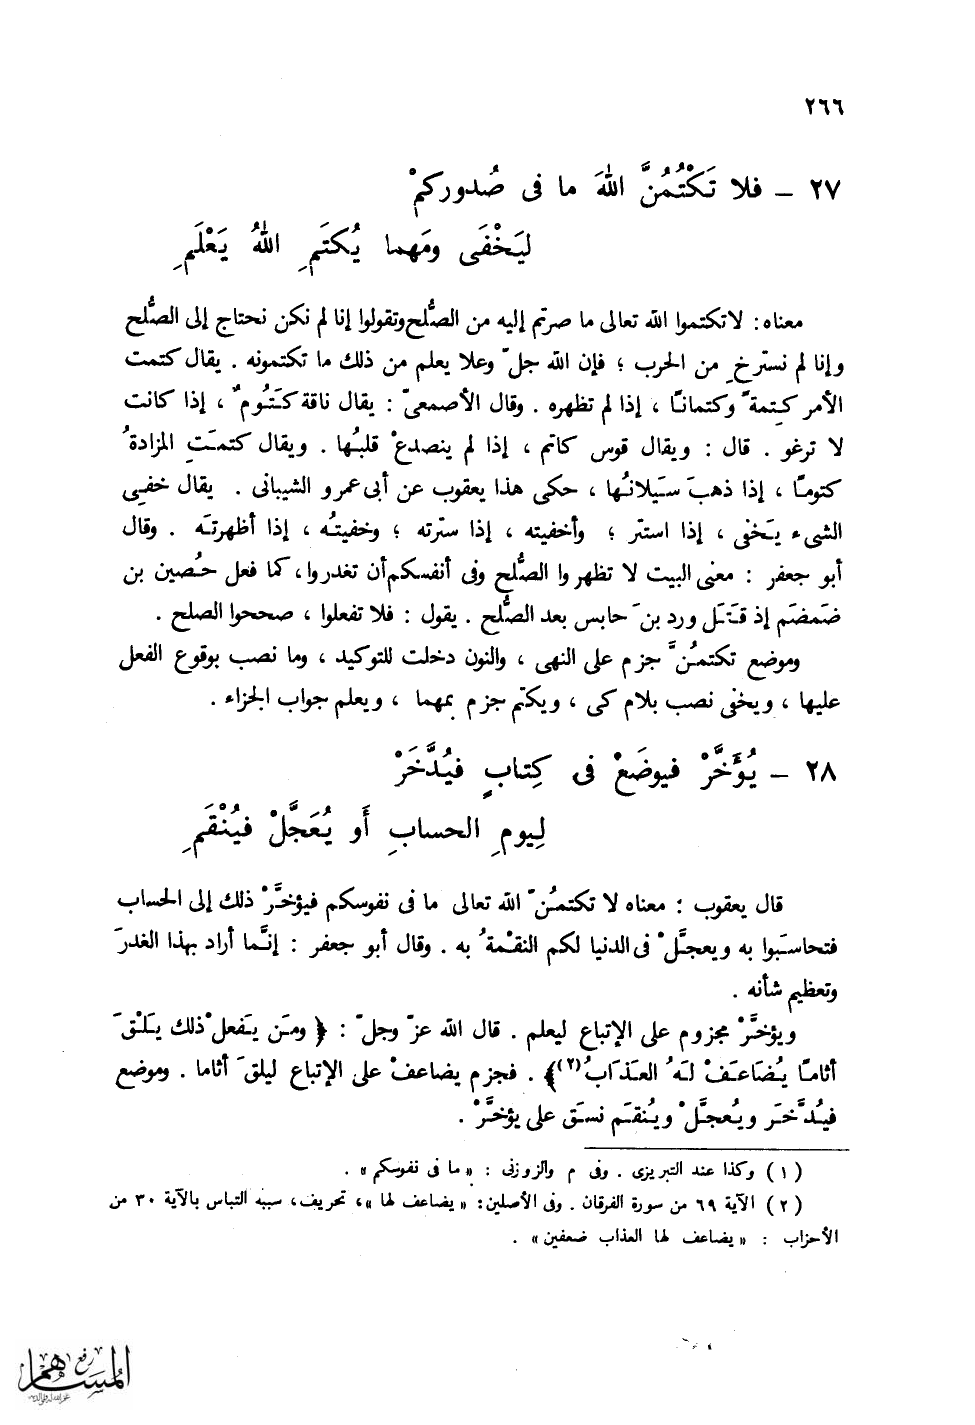 ٢٦٦
٢٧ – فلا تَكْتُمُنَّ اللهَ ما فى صُدوركمْ
ليَخْفَى ومَهما يُكتَمِ اللهُ يَعْلَمِ
معناه: لاتكتموا الله تعالى ما صرتم إليه من الصُّلح وتقولوا إنا لم نكن نحتاج إلى الصُّلح
وإنا لم نسترخِ من الحرب ؛ فإن الله جلّ وعلا يعلم من ذلك ما تكتمونه . يقال كتمت
الأمر كِتمةً وكتمانًا ، إذا لم تظهره . وقال الأصمعىّ : يقال ناقة كَتُومٌ ، إذا كانت
لا ترغو . قال : ويقال قوس كاتم ، إذا لم ينصدعْ قلبُها . ويقال كتمَتِ المزادةُ
كتومًا ، إذا ذهبَ سَيلانُها ، حكى هذا يعقوب عن أبى عمرو الشيبانى . يقال خفِى
الشىء يَخفى ، إذا استتر ؛ وأخفيته ، إذا سترته ؛ وخفيتُه ، إذا أظهرتَه . وقال
أبو جعفر : معنى البيت لا تظهروا الصُّلح وفى أنفسكم أن تغدروا، كما فعل حُصين بن
ضَمضَم إذ قَتَل ورد بنَ حابس بعد الصُّلح . يقول : فلا تفعلوا ، صححوا الصلح .
وموضع تكتمُنَّ جزم على النهى ، والنون دخلت للتوكيد ، وما نصب بوقوع الفعل
عليها ، ويخفى نصب بلام كى ، ويكتم جزم بمهما ، ويعلم جواب الجزاء .
٢٨ – يُؤَخَّرْ فيوضَعْ فى كِتابٍ فيُدَّخَرْ
لِيومِ الحسابِ أَو يُعَجَّلْ فيُنْقَمِ
قال يعقوب : معناه لا تكتمُنّ الله تعالى ما فى نفوسكم فيؤخَّرْ ذلك إلى الحساب
فتحاسَبوا به ويعجلَّْ فى الدنيا لكم النقْمةُ به . وقال أبو جعفر : إنَّما أراد بهذا الغدرَ
وتعظيم شأنه .
ويؤخَّرْ مجزوم على الإتباع ليعلم . قال الله عزّ وجلّ : ﴿ ومَن يَفعلْ ذلك يَلْقَ
أثامًا يُضَاعَفْ لَهُ العَذَابُ(٢)﴾ . فجزم يضاعفْ على الإتباع ليلقَ أثاما . وموضع
فيُدَّخَر ويُعجلَّْ ويُنقَم نسَق على يؤخَّرْ .
(١) وكذا عند التبريزى . وفى م والزوزنى : « ما فى نفوسكم » .
(٢) الآية ٦٩ من سورة الفرقان . وفى الأصلين: « يضاعف لها »، تحريف، سببه التباس بالآية ٣٠ من
الأحزاب : « يضاعف لها العذاب ضعفين» .